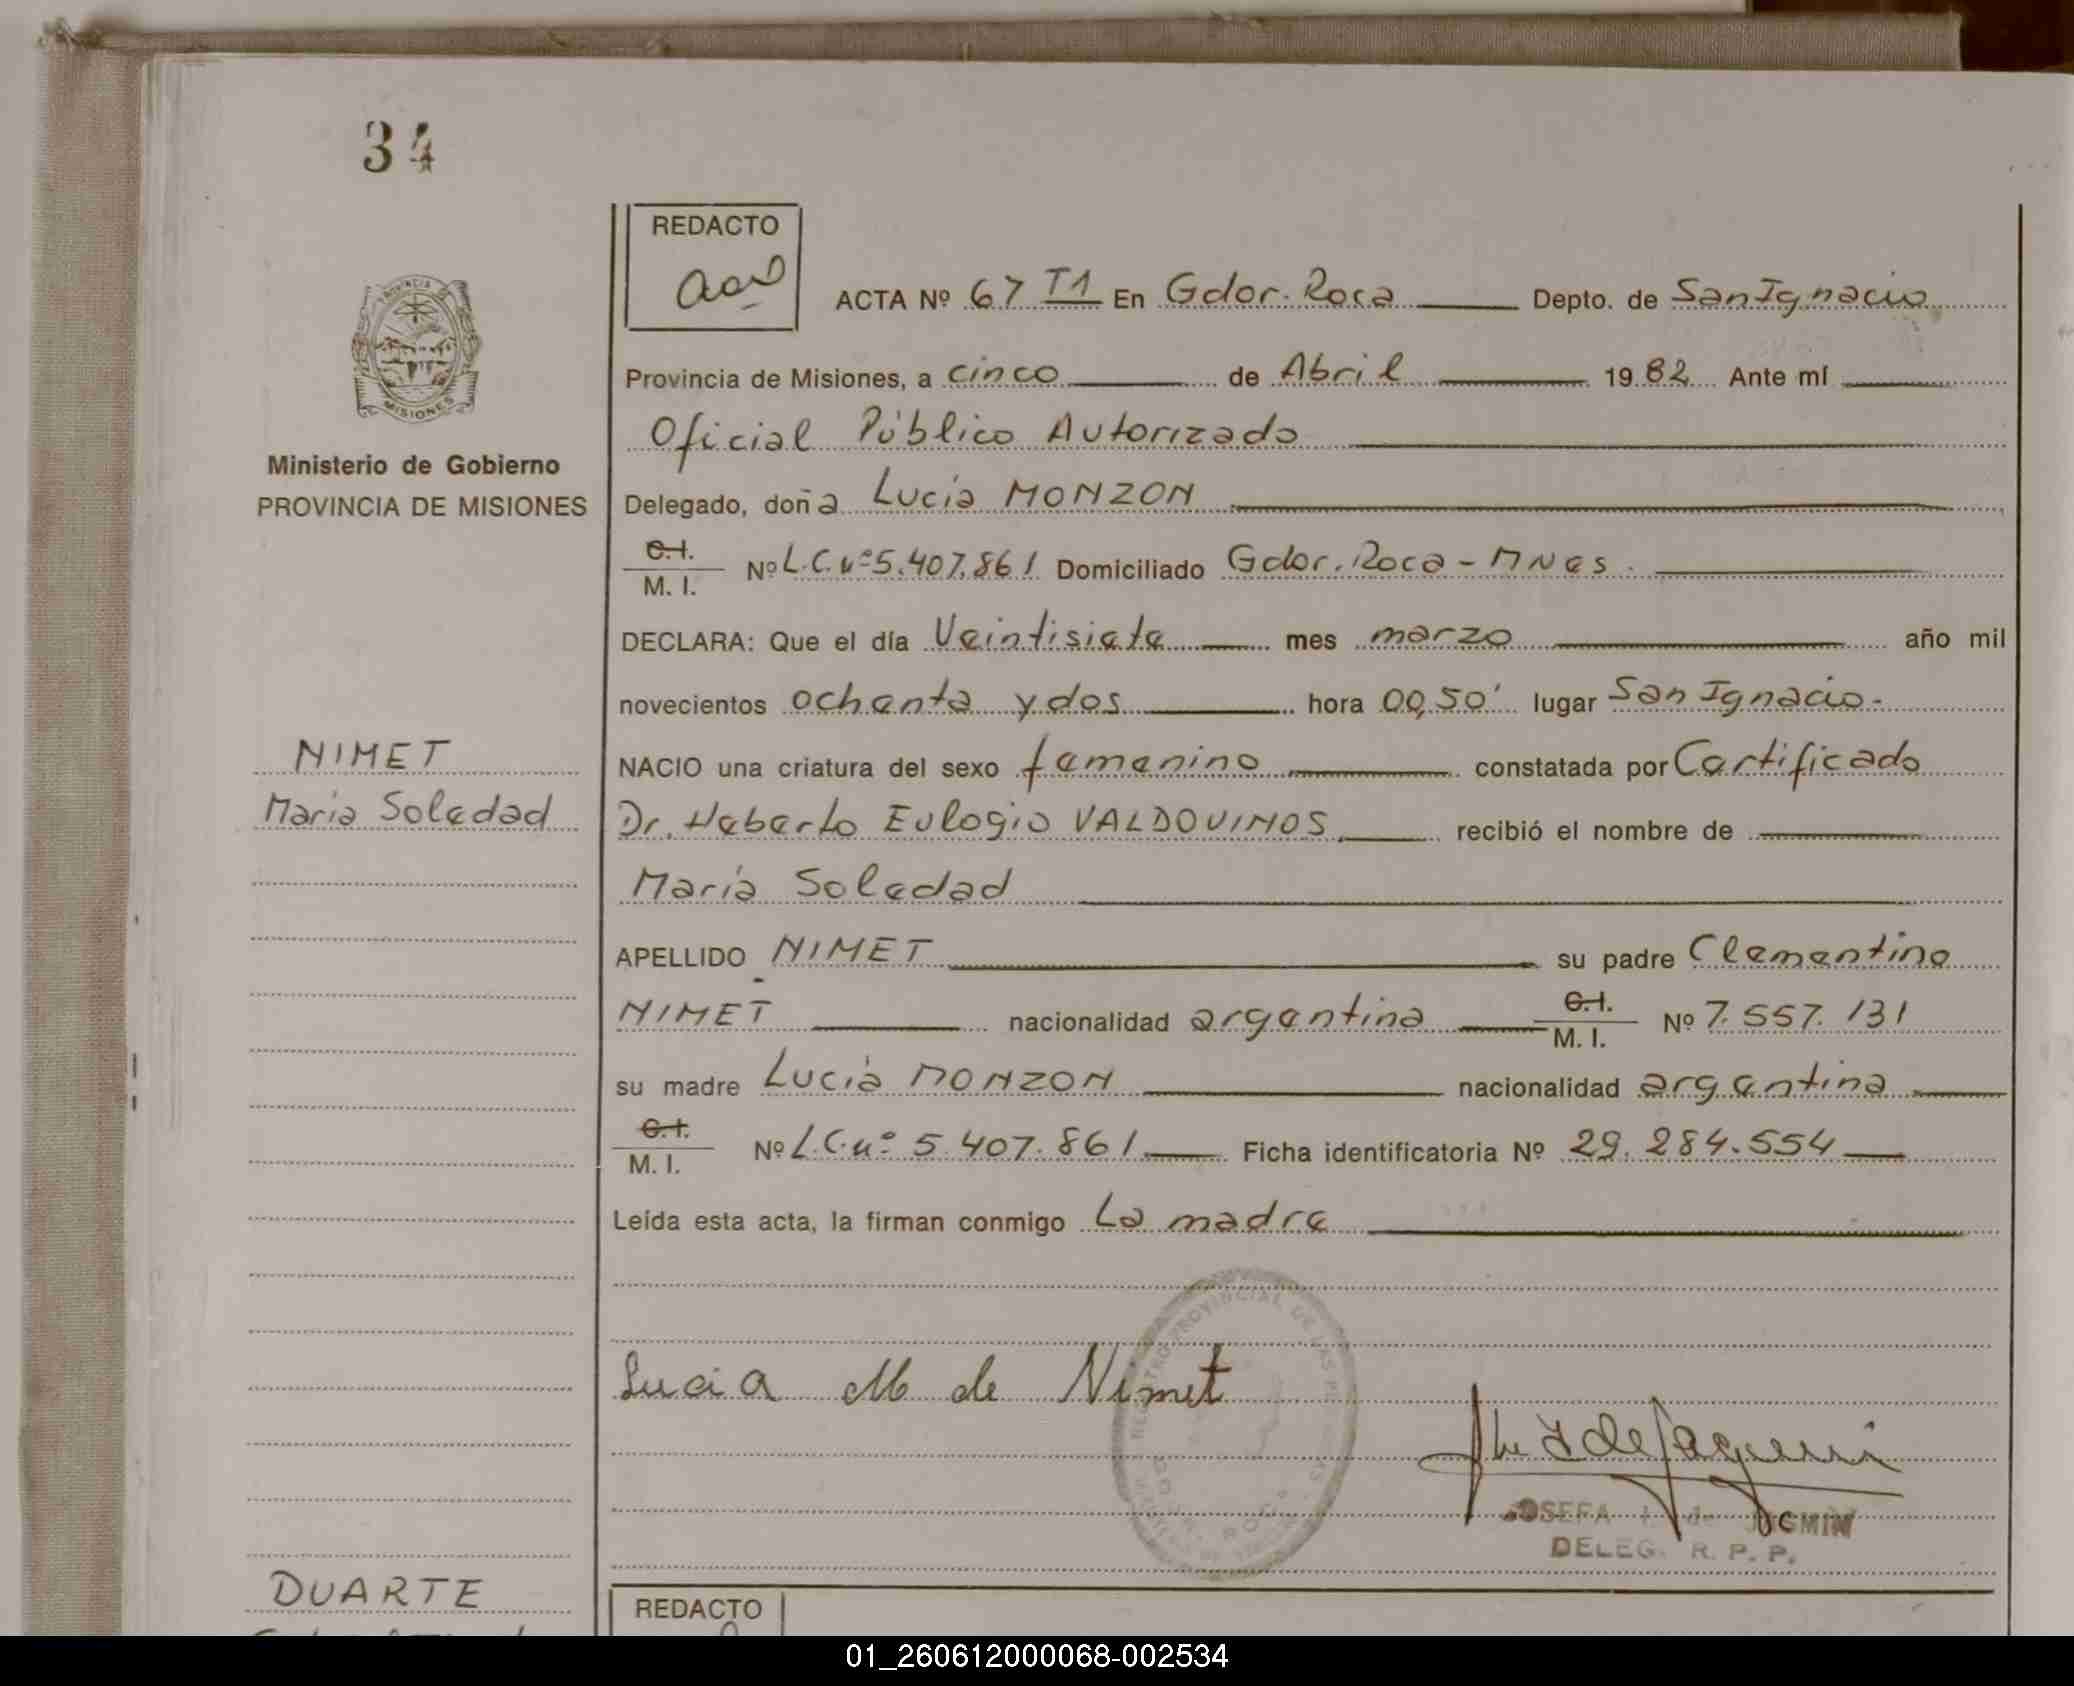 34
REDACTO
ACTA Nº 67 T1 En Gdor. Roca Depto. de San Ignacio
Provincia de Misiones, a cinco de Abril 1982 Ante mí
Oficial Público Autorizado
Ministerio de Gobierno
PROVINCIA DE MISIONES
MISIONES
Delegado, doña Lucía MONZON
C.I. / M. I. Nº L.C.nº 5.407.861 Domiciliado Gdor. Roca - Mnes.
DECLARA: Que el día Veintisiete mes marzo año mil
novecientos ochenta y dos hora 00,50' lugar San Ignacio.-
NIMET
NACIO una criatura del sexo femenino constatada por Certificado
María Soledad
Dr. Heberto Eulogio VALDOVINOS recibió el nombre de
María Soledad
APELLIDO NIMET su padre Clementino
NIMET nacionalidad argentina C.I. / M. I. Nº 7.557.131
su madre Lucía MONZON nacionalidad argentina
C.I. / M. I. Nº L.C.nº 5.407.861 Ficha identificatoria Nº 29.284.554
Leída esta acta, la firman conmigo La madre
REGISTRO PROVINCIAL DE LAS
ROCA
Lucia M de Nimet
JOSEFA de
DELEG. R. P. P.
DUARTE
REDACTO
01_260612000068-002534